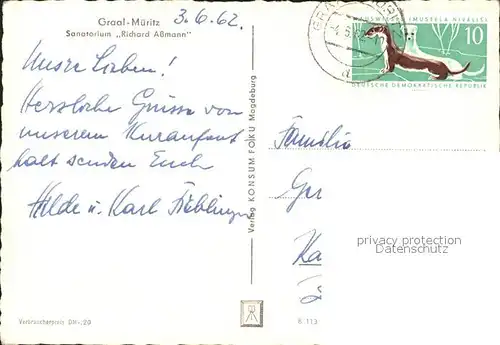 Graal-Müritz
Sanatorium „Richard Aßmann"
3.6.62.
Unsre Lieben!
Herzliche Grüsse von
unserem Kuraufent
halt senden Euch
Hilde u. Karl
Verbraucherpreis DM -,20
Verlag KONSUM FOKU Magdeburg
MAUSWIESEL (MUSTELA NIVALIS)
10
DEUTSCHE DEMOKRATISCHE REPUBLIK
Familie
Ger
Ka
privacy protection
www.ansichtskarten-center.de